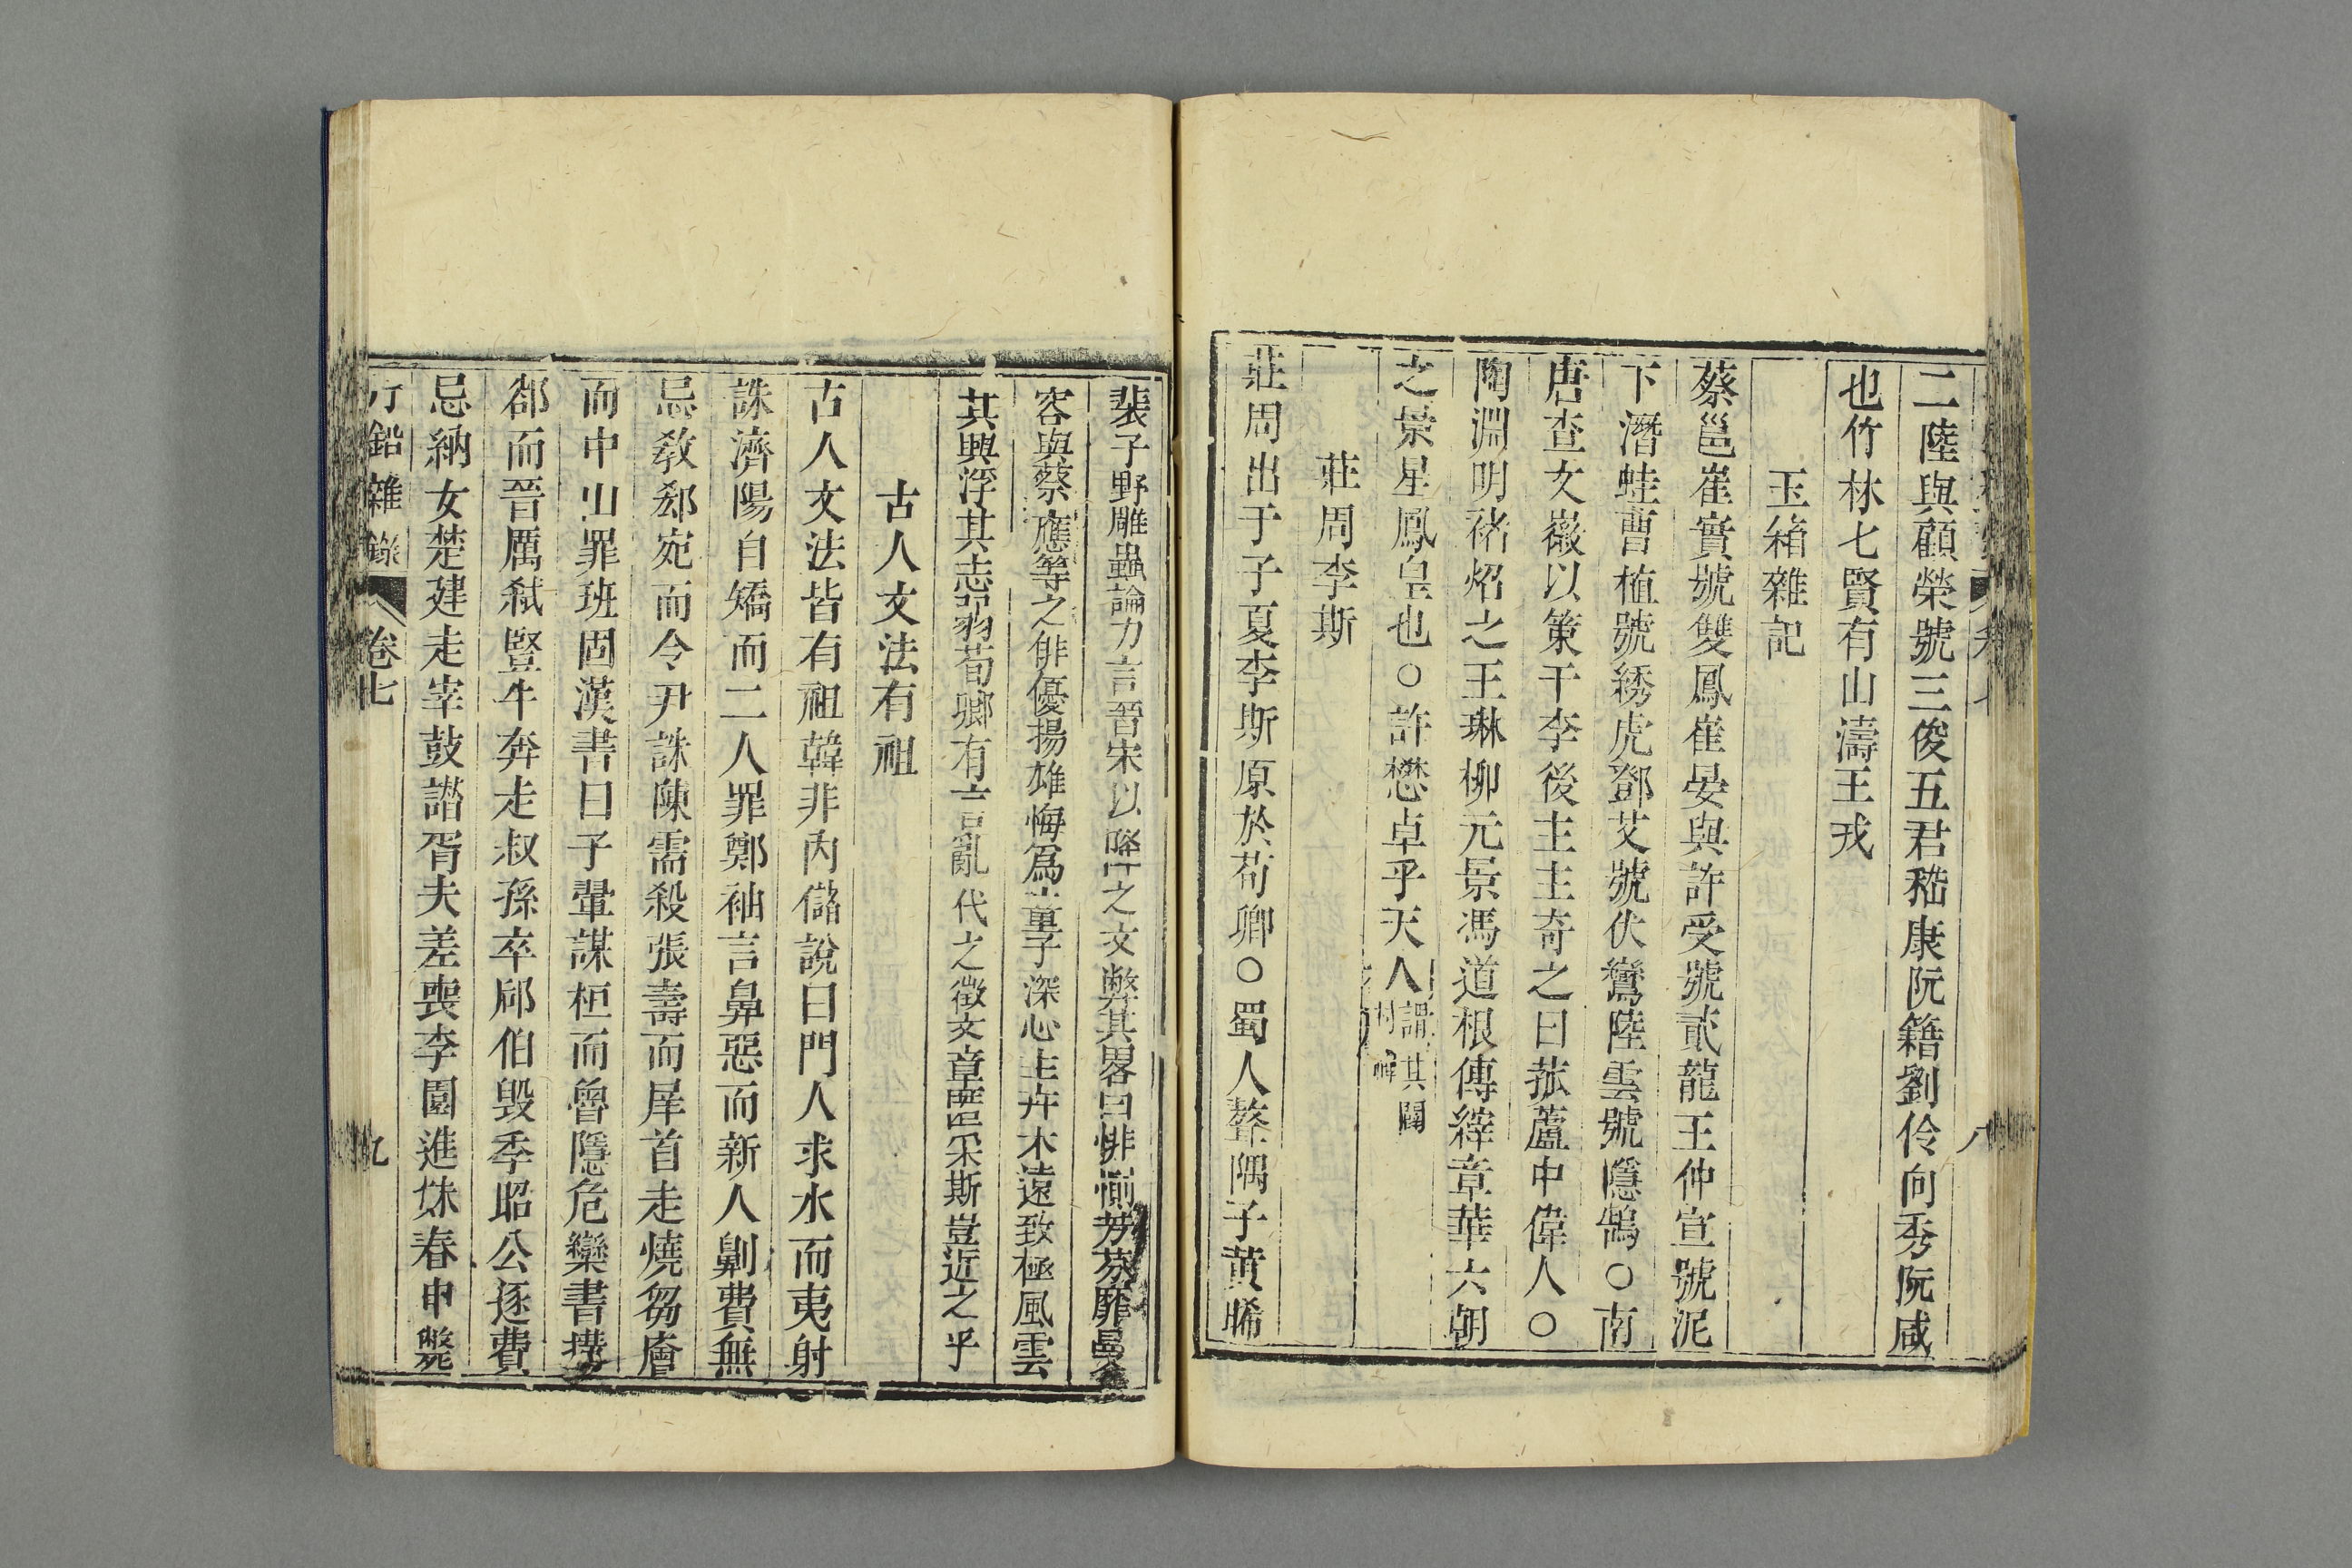 二陸與顧榮號三俊五君嵇康阮籍劉伶向秀阮咸
也竹林七賢有山濤王戎
玉箱雜記
蔡邕崔實號雙鳳崔晏與許受號貳龍王仲宣號泥
下潛蛙曹植號綉虎鄧艾號伏鸞陸雲號隱鵠○南
唐查文徽以策干李後主主奇之曰菰蘆中偉人○
陶淵明褚炤之王琳柳元景馮道根傅縡章華六朝
之景星鳳皇也○許懋卓乎天人謂其闢
封禪
莊周李斯
莊周出于子夏李斯原於荀卿○蜀人嶅隅子黃晞
裴子野雕蟲論力言晉宋以降之文弊其畧曰悱惻芳芬靡曼
容與蔡應等之俳優揚雄悔爲童子深心主卉木遠致極風雲
其興浮其志弱荀卿有言亂代之徵文章匿采斯豈近之乎
古人文法有祖
古人文法皆有祖韓非內儲說曰門人求水而夷射
誅濟陽自矯而二人罪鄭袖言鼻惡而新人劓費無
忌敎郄宛而令尹誅陳需殺張壽而犀首走燒芻廥
而中山罪班固漢書曰子翬謀桓而魯隱危欒書搆
郤而晉厲弒豎牛奔走叔孫卒郈伯毀季昭公逐費
忌納女楚建走宰嚭譖胥夫差喪李園進妹春申斃
鉛雜錄 卷七 九